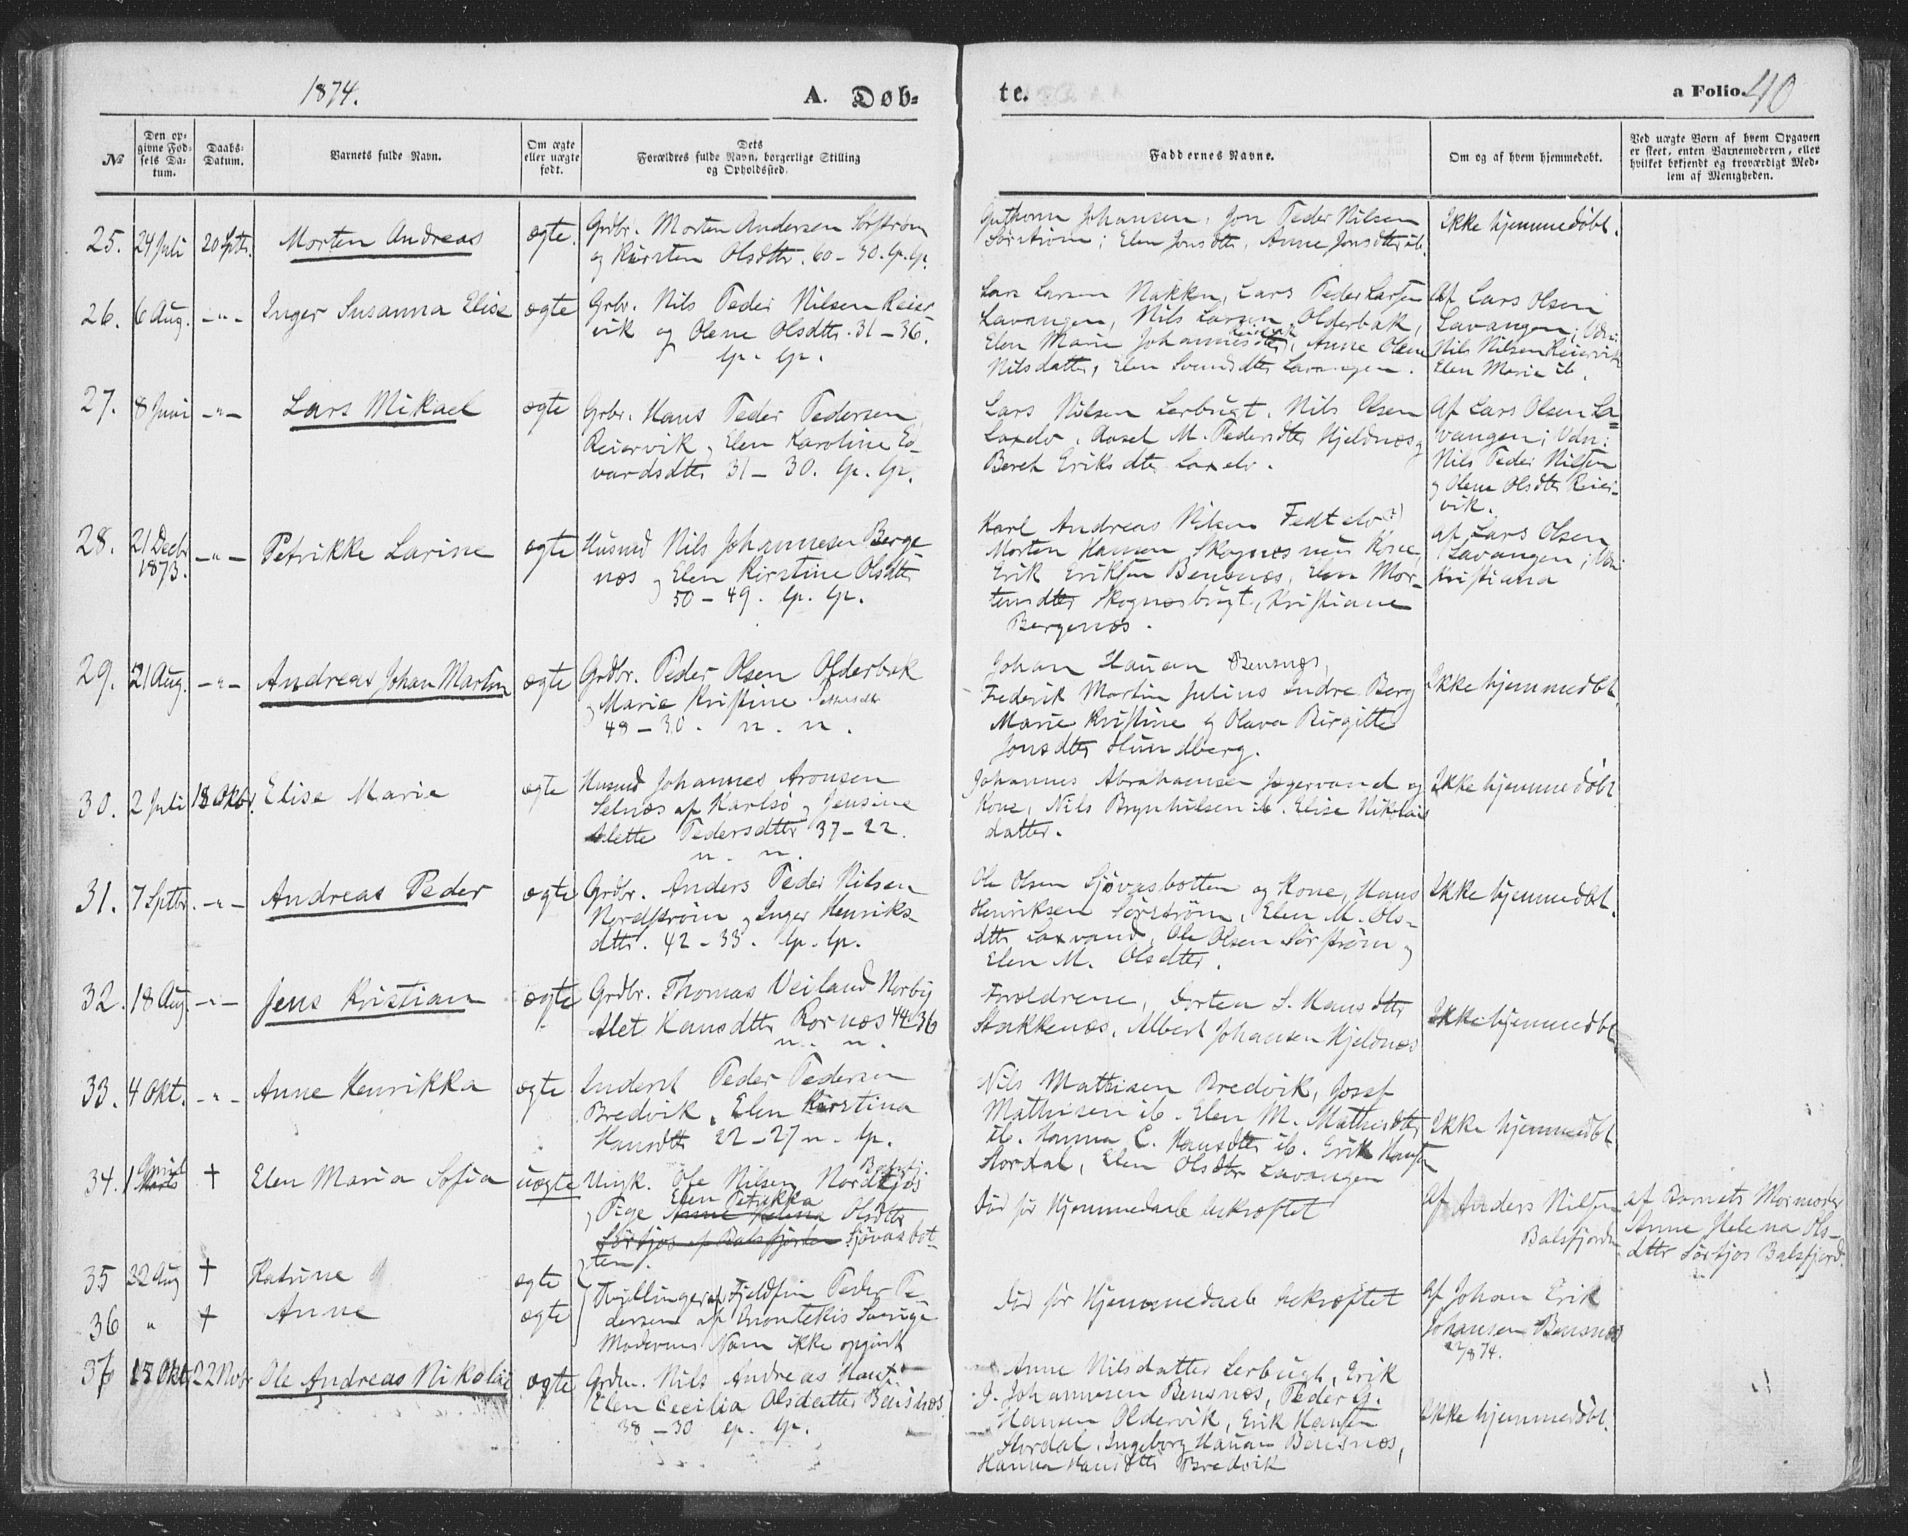 1874.
A. Døb-
te.
a Folio. 40
№
Den op-
givne Fød-
sels Da-
tum.
Daabs-
Datum.
Barnets fulde Navn.
Om ægte
eller uægte
født.
Dets
Forældres fulde Navn, borgerlige Stilling
og Opholdssted.
Faddernes Navne.
Om og af hvem hjemmedøbt.
Ved uægte Børn af hvem Opgaven
er skeet, enten Barnemoderen, eller
hvilket bekjendt og troværdigt Med-
lem af Menigheden.
25. 24 Juli 20 Sptbr. Morten Andreas ægte.
Grdbr. Morten Andersen Sørstrøm
og Kirsten Olsdtr. 60 – 30. lp. lp.
Guthorm Johansen, Jon Peder Nilsen
Sørstrøm; Elen Jonsdtr, Anne Jonsdtr ib.
Ikke hjemmedøbt.
26. 6 Aug. – " – Inger Susanna Elise ægte
Grbr. Nils Peder Nilsen Reier
vik og Olene Olsdtr. 31 – 36.
lp. lp.
Lars Larsen Nakken, Lars Peder Larsen
Lavangen, Nils Larsen Olderbak,
Elen Marie Johannesdtr Reiervik, Anne Olene
Nilsdatter, Elen Svendsdtr Lavangen.
Af Lars Olsen
Lavangen; Vdn:
Nils Nilsen Reiervik
Elen Marie ib.
27. 8 Juni – " – Lars Mikael ægte
Grbr. Hans Peder Pedersen
Reiervik og Elen Karoline Ed-
vardsdtr 31 – 30. lp. lp.
Lars Nilsen Lerbugt, Nils Olsen
Laxelv, Aasel M. Pedersdtr Kjeldnes og
Beret Eriksdtr Laxelv.
Af Lars Olsen La=
vangen; Vdn:
Nils Peder Nilsen
og Olene Olsdtr Reier-
vik.
28. 21 Decbr
1873. – " – Petrikke Larine ægte
Husmd Nils Johannesen Berge
næs og Elen Kirstine Olsdtr
50 – 49. lp. lp.
Karl Andreas Nilsen Fedtelv
Morten Hansen Skognes med Kone,
Erik Eriksen Bensnæs, Elen Mor-
tensdtr Skognesbugt, Kristiane
Bergenæs.
af Lars Olsen
Lavangen; Vdn
Kristiana
29. 21 Aug. – " – Andreas Johan Martin ægte
Grdbr. Peder Olsen Olderbak
og Marie Kristine
48 – 30. n. n.
Johan Hauan Bensnæs,
Frederik Martin Julius Berg
Marie Kristine og Olava Birgitte
Jonsdtr Hundberg.
Ikke hjemmedøbt
30. 2 Juli 18 Oktbr. Elise Marie ægte
Husmd Johannes Aronsen
Selnæs af Karlsø og Jensine
Alette Pedersdtr 37 – 22.
n. n.
Johannes Abrahamsen Jægervand og
Kone, Nils Brynhilsen ib. Elise Nikolais
datter.
Ikke hjemmedøbt
31. 7 Sptbr. – " – Andreas Peder ægte
Grdbr. Anders Peder Nilsen
Nordstrøm og Inger Henriks-
dtr. 42 – 33. lp. lp.
Ole Olsen Sjøvasbotten og Kone, Hans
Henriksen Sørstrøm, Elen M. Ols-
dtr Laxvand, Ole Olsen Sørstrøm og
Elen M. Olsdtr.
Ikke hjemmedøbt.
32. 18 Aug. – " – Jens Kristian ægte
Grdbr. Thomas Veiland Norbye
Alet Hansdtr Rornæs 44–36
n. n.
Forældrene, Dorten S. Hansdtr
Stakkenæs, Albert Johansen Kjeldnæs
Ikke hjemmedøbt
33. 4 Okt. – " – Anne Henrikka ægte
Inderst Peder Pedersen
Bredvik, Elen Kirstina
Hansdtr 22 – 27 n. lp.
Nils Mathisen Bredvik, Josef
Mathisen ib. Elen M. Mathisdtr
ib. Hanna E. Hansdtr ib. Erik Hansen
Stordal, Elen Olsdtr Lavangen
Ikke hjemmedøbt
34. 1 April Marts † Elen Maria Sofia uægte
Ungk. Ole Nilsen Nordkjos Balsfj.
og Pige Elen Petrikka Anne Helena Olsdtr
Sørkjos af Balsfjorden Sjøvasbot-
ten.
Død før Hjemmedaab bekræftet
Af Anders Nilsen
Balsfjorden
af Barnets Mormoder
Anne Helena Ols-
dtr Sørkjos Balsfjord.
35 22 Aug † Katrine ægte
36 " † Anne ægte
Tvillinger af Fjeldfin Peder Pe-
dersen af Enontekis Sverige
Moderens Navn ikke opgivet
Død før Hjemmedaab bekræftet
Af Johan Erik
Johansen Bensnæs
22/8 74.
37 15 Okt 22 Nvbr Ole Andreas Nikolai ægte
Grdm. Nils Andreas Hansen
Elen Cecilia Olsdatter Bensnæs
38 – 30 lp. lp.
Anne Nilsdatter Lerbugt, Erik
J. Johannesen Bensnæs, Peder G.
Hansen Oldervik, Erik Hansen
Stordal, Ingeborg Hauan Bensnæs,
Hanna Hansdtr Bredvik
Ikke hjemmedøbt.